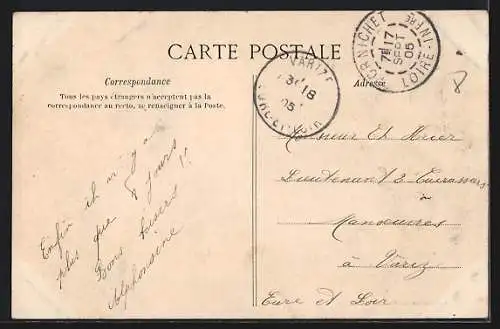 CARTE POSTALE
Correspondance
Tous les pays étrangers n'acceptent pas la
correspondance au recto, se renseigner à la Poste.
Adresse
PORNICHET
7E 17
SEPT
05
LOIRE-INFRE
VARIZE
18
05
EURE-ET-LOIR
8
Enfin il n'y a
plus que 8 jours !!
Bons baisers
Alphonsine
Monsieur Et.
Lieutenant 2 Cuirassiers
Manœuvres
à Variz
Eure et Loir